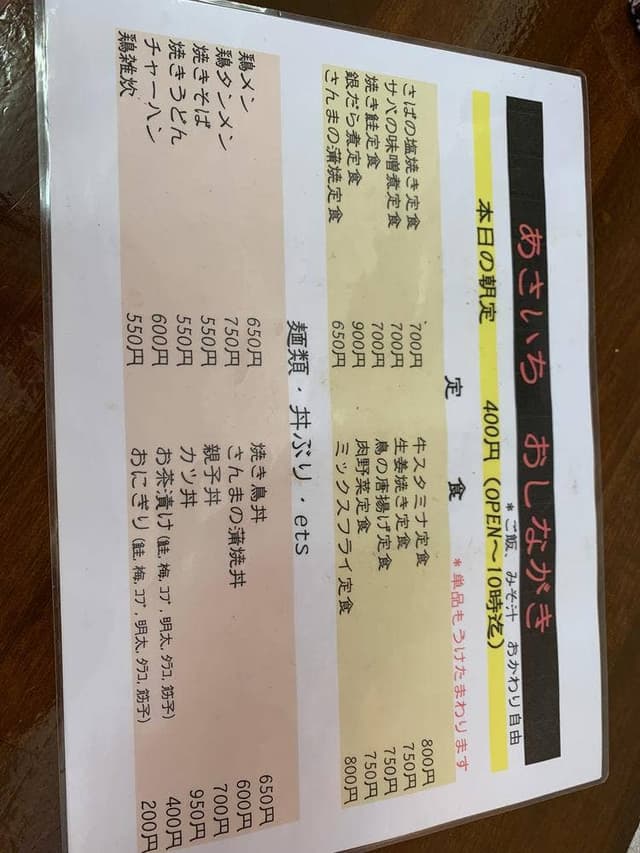 あさいち　おしながき
*ご飯、みそ汁　おかわり自由
本日の朝定　400円（OPEN～10時迄）
定　食　*単品もうけたまわります
さばの塩焼き定食　700円　牛スタミナ定食　800円
サバの味噌煮定食　700円　生姜焼き定食　750円
焼き鮭定食　700円　鳥の唐揚げ定食　750円
銀だら煮定食　900円　肉野菜定食　750円
さんまの蒲焼定食　650円　ミックスフライ定食　800円
麺類・丼ぶり・ets
鶏メン　650円　焼き鳥丼　650円
鶏タンメン　750円　さんまの蒲焼丼　600円
焼きそば　550円　親子丼　700円
焼きうどん　550円　カツ丼　950円
チャーハン　600円　お茶漬け（鮭,梅,ｺﾌﾞ,明太,ﾀﾗｺ,筋子）　400円
鶏雑炊　550円　おにぎり（鮭,梅,ｺﾌﾞ,明太,ﾀﾗｺ,筋子）　200円